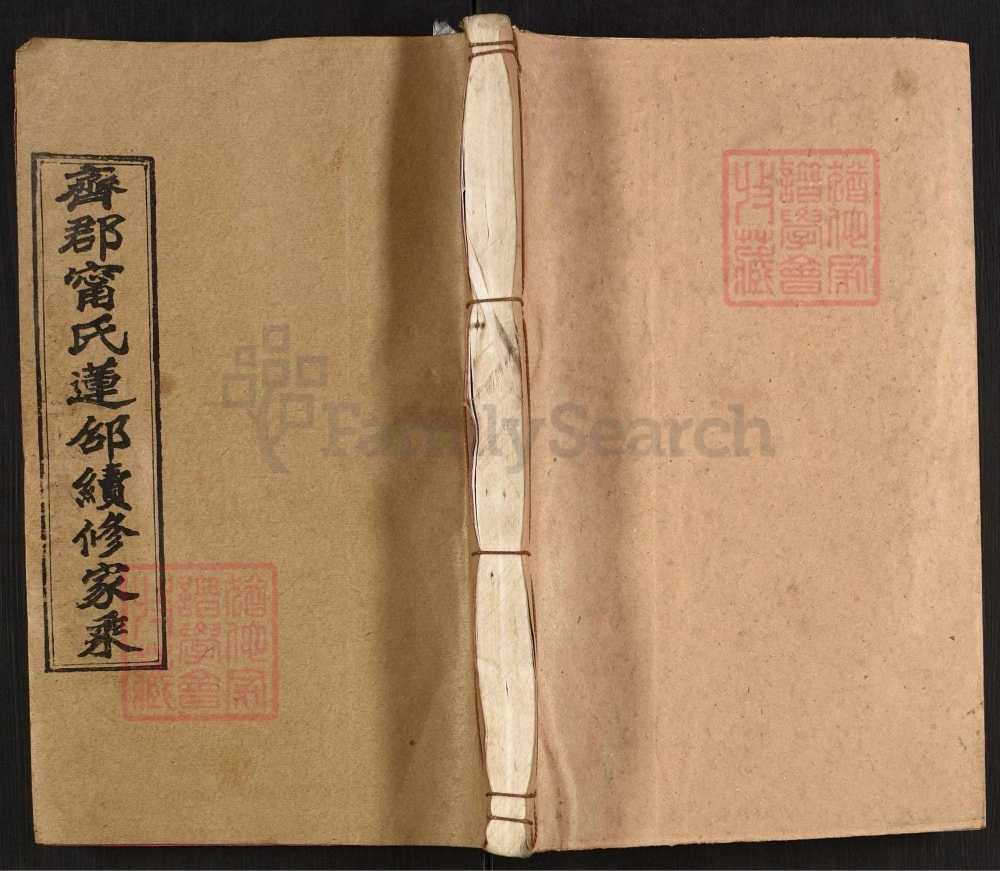 齊郡甯氏蓮邰續修家乘
猶他家
譜學會
特藏
猶他家
譜學會
特藏
FamilySearch